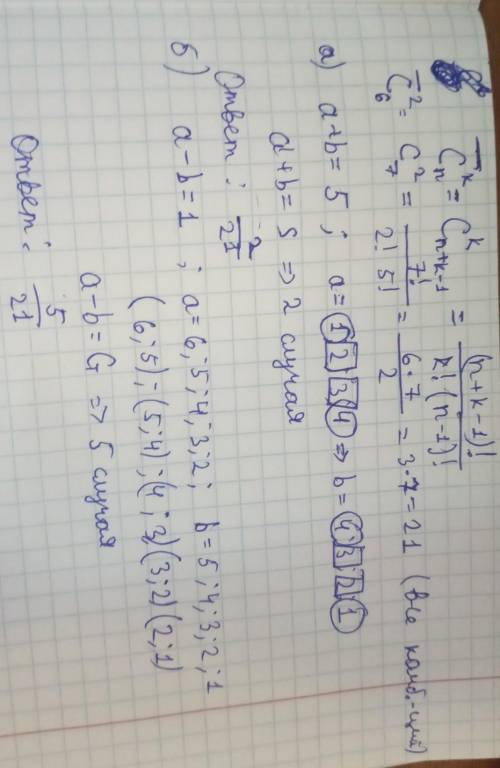 C̅ₙᵏ = Cₙ₊ₖ₋₁ᵏ = (n+k-1)! / k! (n-1)!
C̅₆² = C₇² = 7! / 2! 5! = 6·7 / 2 = 3·7 = 21 (все комб.-ций)
а) a+b = 5 ; a = 1 2 3 4 ⇒ b = 4 3 2 1
a+b = 5 ⇒ 2 случая
Ответ: 2/21
б) a-b = 1 ; a = 6; 5; 4; 3; 2; b = 5; 4; 3; 2; 1
(6;5); (5;4); (4;3) (3;2) (2;1)
a-b = G ⇒ 5 случая
Ответ: 5/21